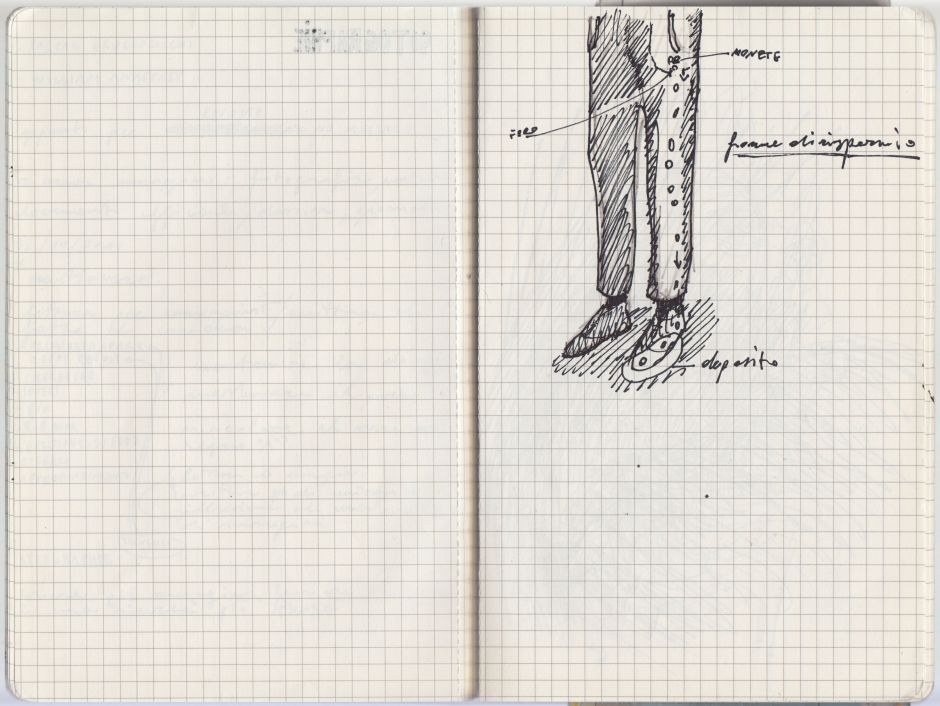 MONETE
FORO
forme di risparmio
deposito